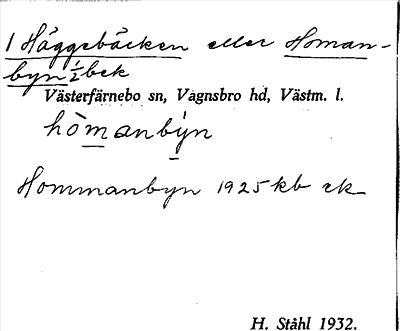 1 Häggebäcken eller Homan-
byn ½ bek
Västerfärnebo sn, Vagnsbro hd, Västm. l.
hòmanbýn
Hommanbyn 1925 kb ek
H. Ståhl 1932.